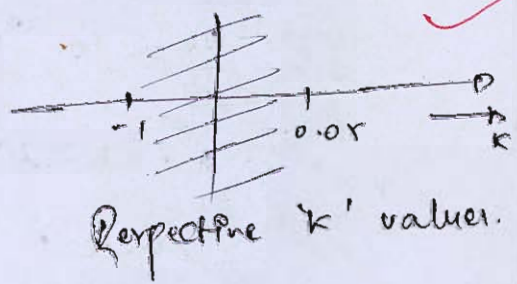 -1 0.05
K
Perpective 'k' values.